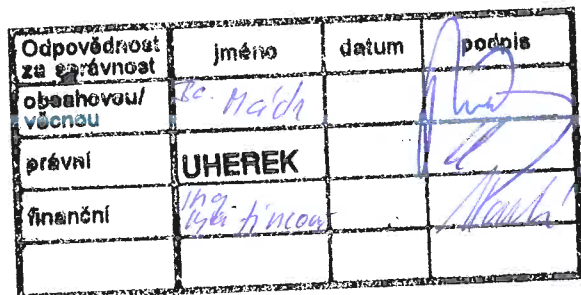 Odpovědnost za správnost jméno datum podpis
obsahovou/ věcnou Bc. Mach
právní UHEREK
finanční Ing.